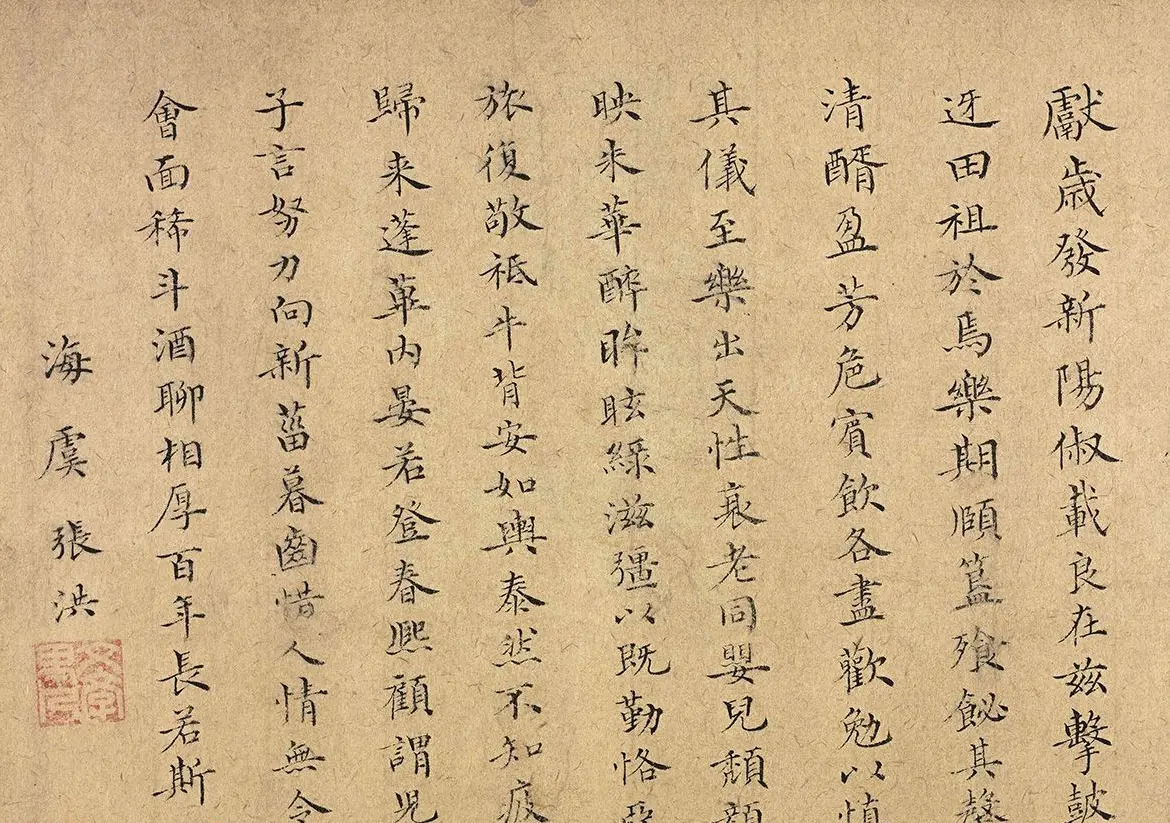 獻歲發新陽俶載良在茲擊鼓
迓田祖於焉樂期頤簋飧飶其馨
清醑盈芳卮賓飲各盡歡勉以慎
其儀至樂出天性衰老同嬰兒頹顏
映朱華醉眸眩綠滋彊以既勤恪
旅復敬祗牛背安如輿泰然不知疲
歸来蓬蓽内晏若登春熙顧謂児
子言努力向新菑暮齒惜人情無令
會面稀斗酒聊相厚百年長若斯
海虞張洪